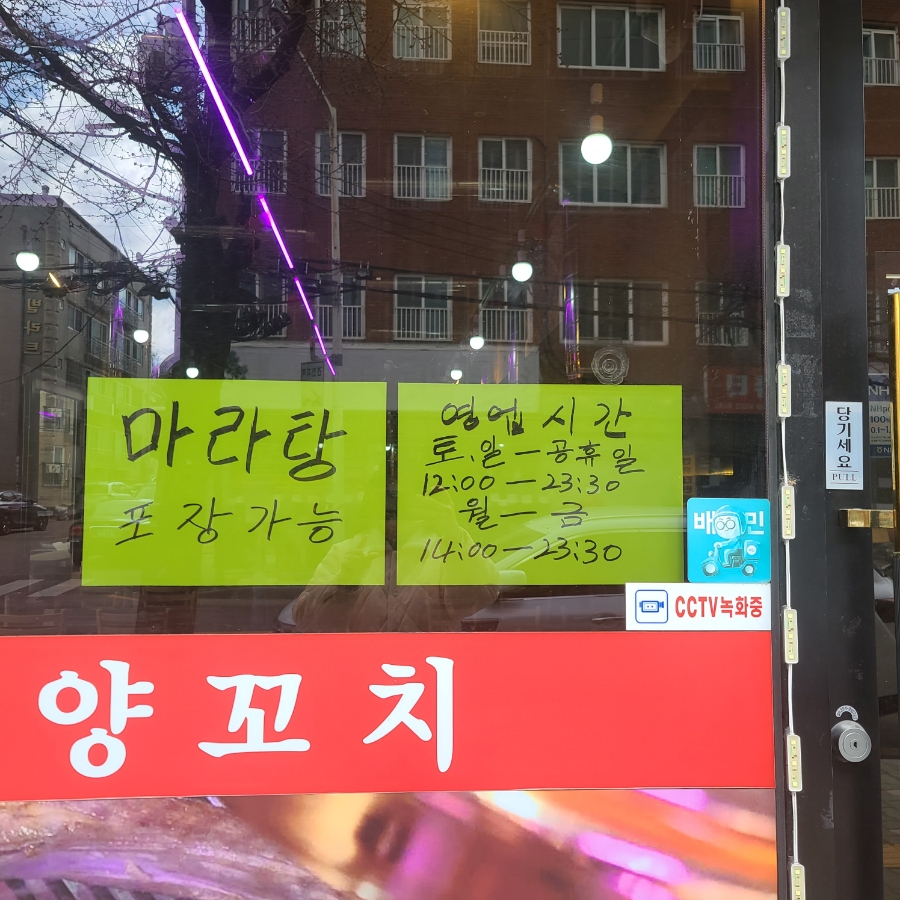 마라탕
포장가능
영업시간
토.일 - 공휴일
12:00 - 23:30
월 - 금
14:00 - 23:30
배민
CCTV녹화중
당기세요
PULL
양꼬치